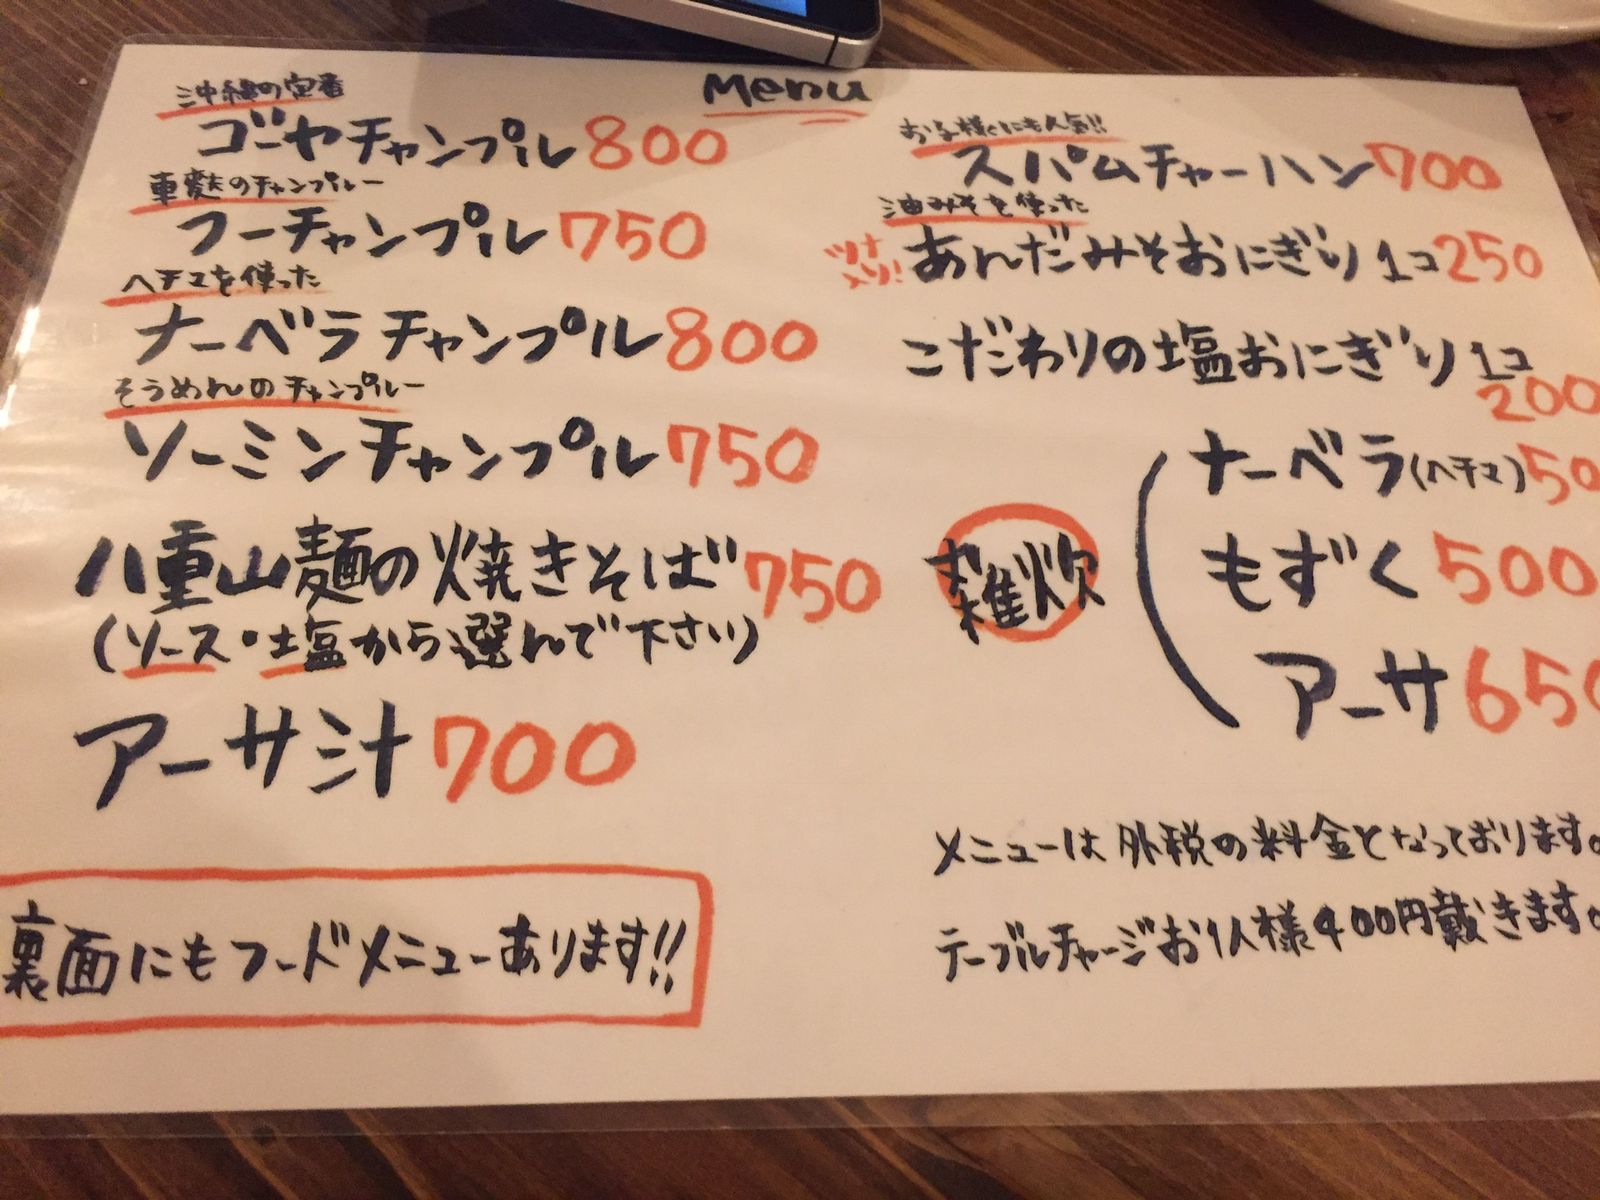 Menu
沖縄の定番
ゴーヤチャンプル 800
車麩のチャンプルー
フーチャンプル 750
ヘチマを使った
ナーベラチャンプル 800
そうめんのチャンプルー
ソーミンチャンプル 750
八重山麺の焼きそば 750
(ソース・塩から選んで下さい)
アーサ汁 700
裏面にもフードメニューあります!!
お子様にも人気!!
スパムチャーハン 700
油みそを使った
ツナ
あんだみそおにぎり 1コ 250
こだわりの塩おにぎり 1コ
200
雑炊
ナーベラ(ヘチマ) 50
もずく 500
アーサ 650
メニューは外税の料金となっております。
テーブルチャージお1人様400円戴きます。